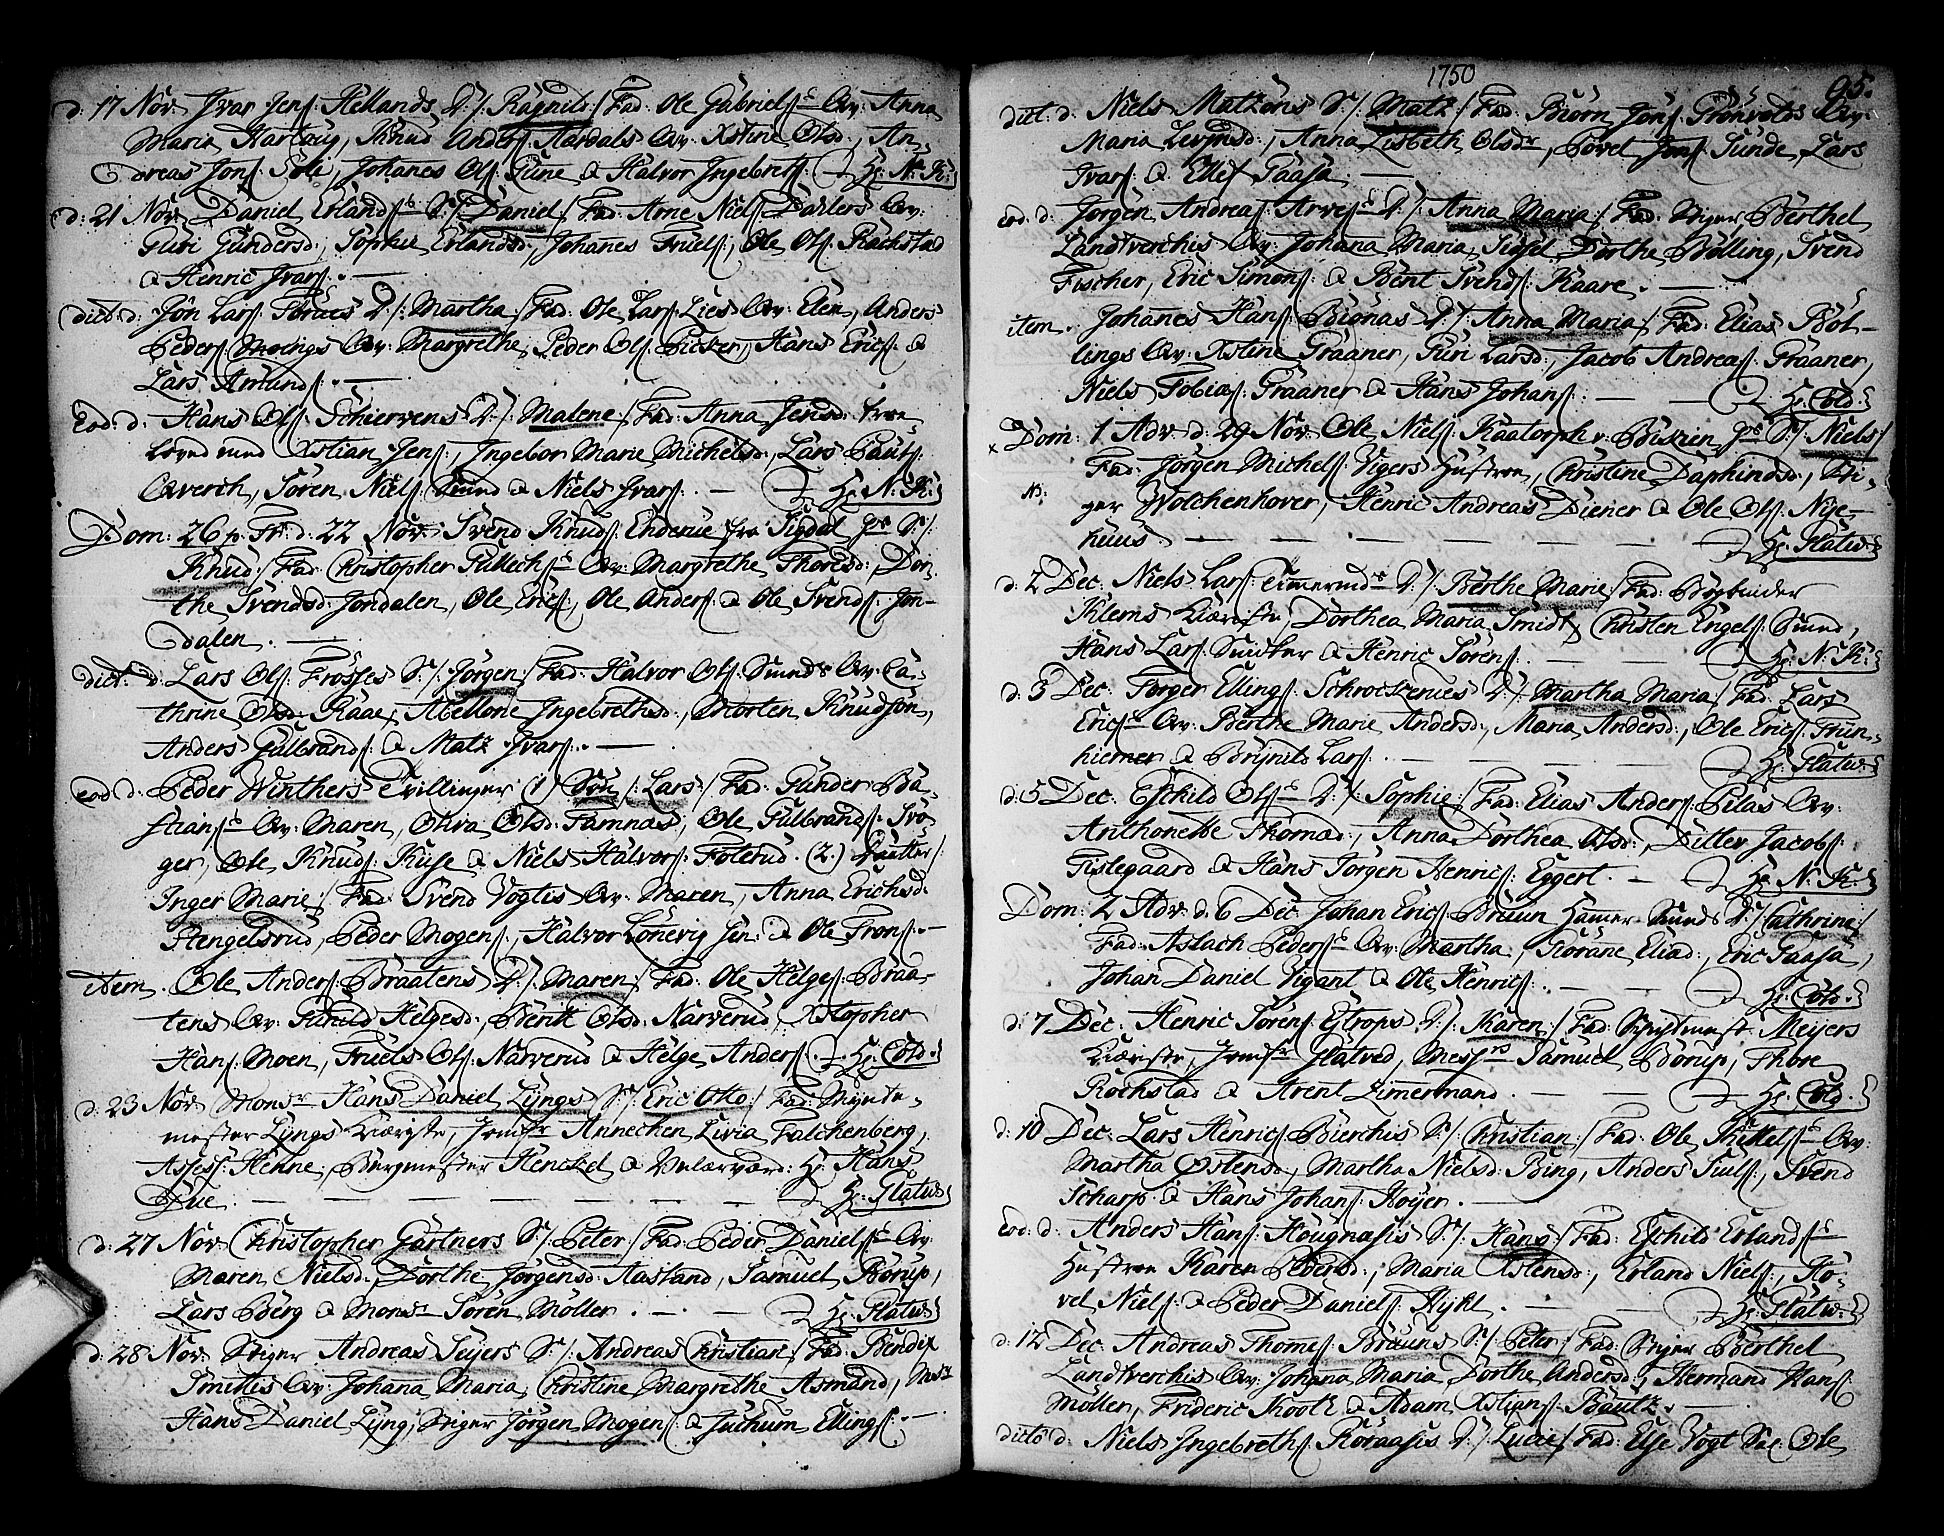 d. 17 Nov. Jvar Jens: Hellands D./: Ragnild :/ Fad: Ole Gabriels: Qv: Anna
Maria Hartoug, Knud Anders: Aardals Qv: Xstine Olsd., An-
dreas Jons: Sole, Johanes Ols: Tune & Halvor Jngebrets: Hr. N: K:
d. 21 Nov. Daniel Erlands: S./: Daniel :/ Fad: Arne Niels: Dahlers Qv:
Guri Gundersd:, Sophie Erlandsd:, Johanes Truels:, Ole Ols: Rachstad
& Henric Jvars:.
dict. d: Jon Lars: D./: Martha :/ Fad: Ole Lars: Lies Qv: Elen, Anders
Peders: Moings Qv: Margrethe, Peder Ols: Picker, Hans Erics: &
Lars Amunds:.
Eod. d: Hans Ols: Schiervens D./: Malene :/ Fad: Anna Jensd: troe-
loved med Xstian Jens:, Jngebor Marie Michelsd:, Lars Pauls:
Qverch, Soren Niels: Smud & Niels Jvars:. Hr. N: K:
Dom: 26 p. Tr: d. 22 Nov: Svend Knuds: Enderue fra Sigdal S./:
Knud :/ Fad: Christopher Qv: Margrethe Thoresd:, Dor-
the Svendsd: Jondalen, Ole Erics:, Ole Anders: & Ole Svends: Jon-
dalen.
dict. d: Lars Ols: Frosses S./: Jörgen :/ Fad: Halvor Ols: Smuds Qv: Ca-
thrine Olsd: Raae, Abellone Jngebrethsd:, Morten Knudsön,
Anders Gulbrands: & Matz Jvars:.
eod. d: Peder Winthers Tvillinger (1) Sön /: Lars :/ Fad: Gunder Ba-
stians: Qv: Maren, Oliva Olsd: Famnas, Ole Gulbrands: Svo-
ger, Ole Knuds: Kuse & Niels Halvors: Foterud. (2.) Datter /:
Jnger Marie :/ Fad: Svend Vogtis Qv: Maren, Anna Erichsd:
Stengelsrud, Peder Mogens:, Halvor Lönevig Jen: & Ole Trons:.
item. Ole Anders: Braatens D./: Maren :/ Fad: Ole Helges: Braa-
tens Qv: Gunild Helgesd:, Berit Olsd: Narverud, Xstopher
Hans: Moen, Truels Ols: Narverud & Helge Anders:. Hr: Cold.
d. 23 Nov. Monsr Hans Daniel Lyngs S./: Eric Otto :/ Fad: Mynte-
mester Lyngs Kiæreste, Jomfr Annechen Livia Falchenberg,
Assess: Henne, Burgmester Henckel & Hr. Hans
Due. Hr: Statw:
d. 27 Nov. Christopher Gartners S./: Peter :/ Fad: Peder Daniels: Qv:
Maren Nielsd:, Dorthe Jörgensd: Aastand, Samuel Borup,
Lars Berg & Monsr Sören Möller. Hr. Statw:
d. 28 Nov. Stiger Andreas Seyers S./: Andreas Christian :/ Fad: Bendix
Smittis Qv: Johana Maria, Christine Margrethe Asmand, Mesr
Hans Daniel Lyng, Stiger Jörgen Mogens: & Juchum Ellings:.
1750
95.
dict: d. Niels Matzöns S./: Matz :/ Fad: Biörn Jons: Grönvolds Qv:
Maria, Anna Lisbeth Olsdr, Povel Jens: Sunde, Lars
Jvars: & Ellef Paasa.
eod. d: Jörgen Andreas: Arves D./: Anna Maria :/ Fad: Stiger Berthel
Landtverchis Qv: Johana Maria, Sidsel Dorthe Bölling, Svend
Fischer, Eric Simons: & Bent Svends: Kaare.
item. Johanes Hans: Buönas D./: Anna Maria :/ Fad: Elias Böl-
lings Qv: Xstine Graaner, Guri Larsd:, Jacob Andreas: Graaner,
Niels Tobias: Graaner & Hans Johans:. Hr. Cold.
Dom: 1 Adv. d: 29 Nov: Ole Niels: Kaatorph S./: Niels :/
Fad: Jörgen Michels: Vigers Hustroe, Christine Daphindsd:, Sti-
ger Wolchenhover, Henric Andreas Diener & Ole Ols: Nye-
huus Hr. Statw:
NB:
d. 2 Dec: Niels Lars: Timeruds D./: Berthe Marie :/ Fad: Bogbinder
Klems Kiæreste, Dorthea Maria Smidt, Christen Engels: Smud,
Hans Lars: Smcker & Henric Sörens:. Hr. N: K:
d. 3 Dec: Torger Ellings: D./: Martha Maria :/ Fad: Lars
Erics: Qv: Berthe Marie Andersd:, Maria Andersd:, Ole Erics: Trun-
hiemer & Brynild Lars:. Hr. Statw:
d: 5 Dec: Eschild Ols: D./: Sophie :/ Fad: Elias Anders: Pilas Qv:
Anthonette Thomasd:, Anna Dorthea Olsd:, Ditler Jacobs:
Tislegaard & Hans Jörgen Henrics: Eggert. Hr. N: K:
Dom: 2 Adv: d. 6 Dec: Johan Erics: Bruun Hamer Smuds D./: Cathrine :/
Fad: Aslach Peders: Qv: Martha, Gorane Eliasd:, Eric Paasa,
Johan Daniel Vigant & Ole Henrics:. Hr. Cold.
d: 7 Dec: Henric Sörens: D./: Karen :/ Fad: Meyers
Kiæreste, Jomfr Slatved, Messrs Samuel Borup, Thore
Rochstad & Arent Zimermand. Hr. Cold.
d. 10 Dec: Lars Henrics: Bierchis S./: Christian :/ Fad: Ole Kittels: Qv:
Martha Östensd:, Martha Nielsd: Bing, Anders Juuls:, Svend
Scharp & Hans Johans: Höyer.
Eod. d: Anders Hans: Hougnasis S./: Hans :/ Fad: Eschild Erlands:
Hustroe Karen Pedersd:, Maria Xstensd:, Erland Niels:, Po-
vel Niels: & Peder Daniels: Nykl. Hr. Statw:
d. 12 Dec: Andreas Thomes: Bruuns S./: Peter :/ Fad: Stiger Berthel
Landtverchis Qv: Johana Maria, Dorthe Andersd:, Hermand Hans:
Möller, Frideric Kootz & Adam Xstians: Bautz.
dicto d: Niels Jngebreths: Goraasis D./: Lucie :/ Fad: Else Vogt Sal: Ole